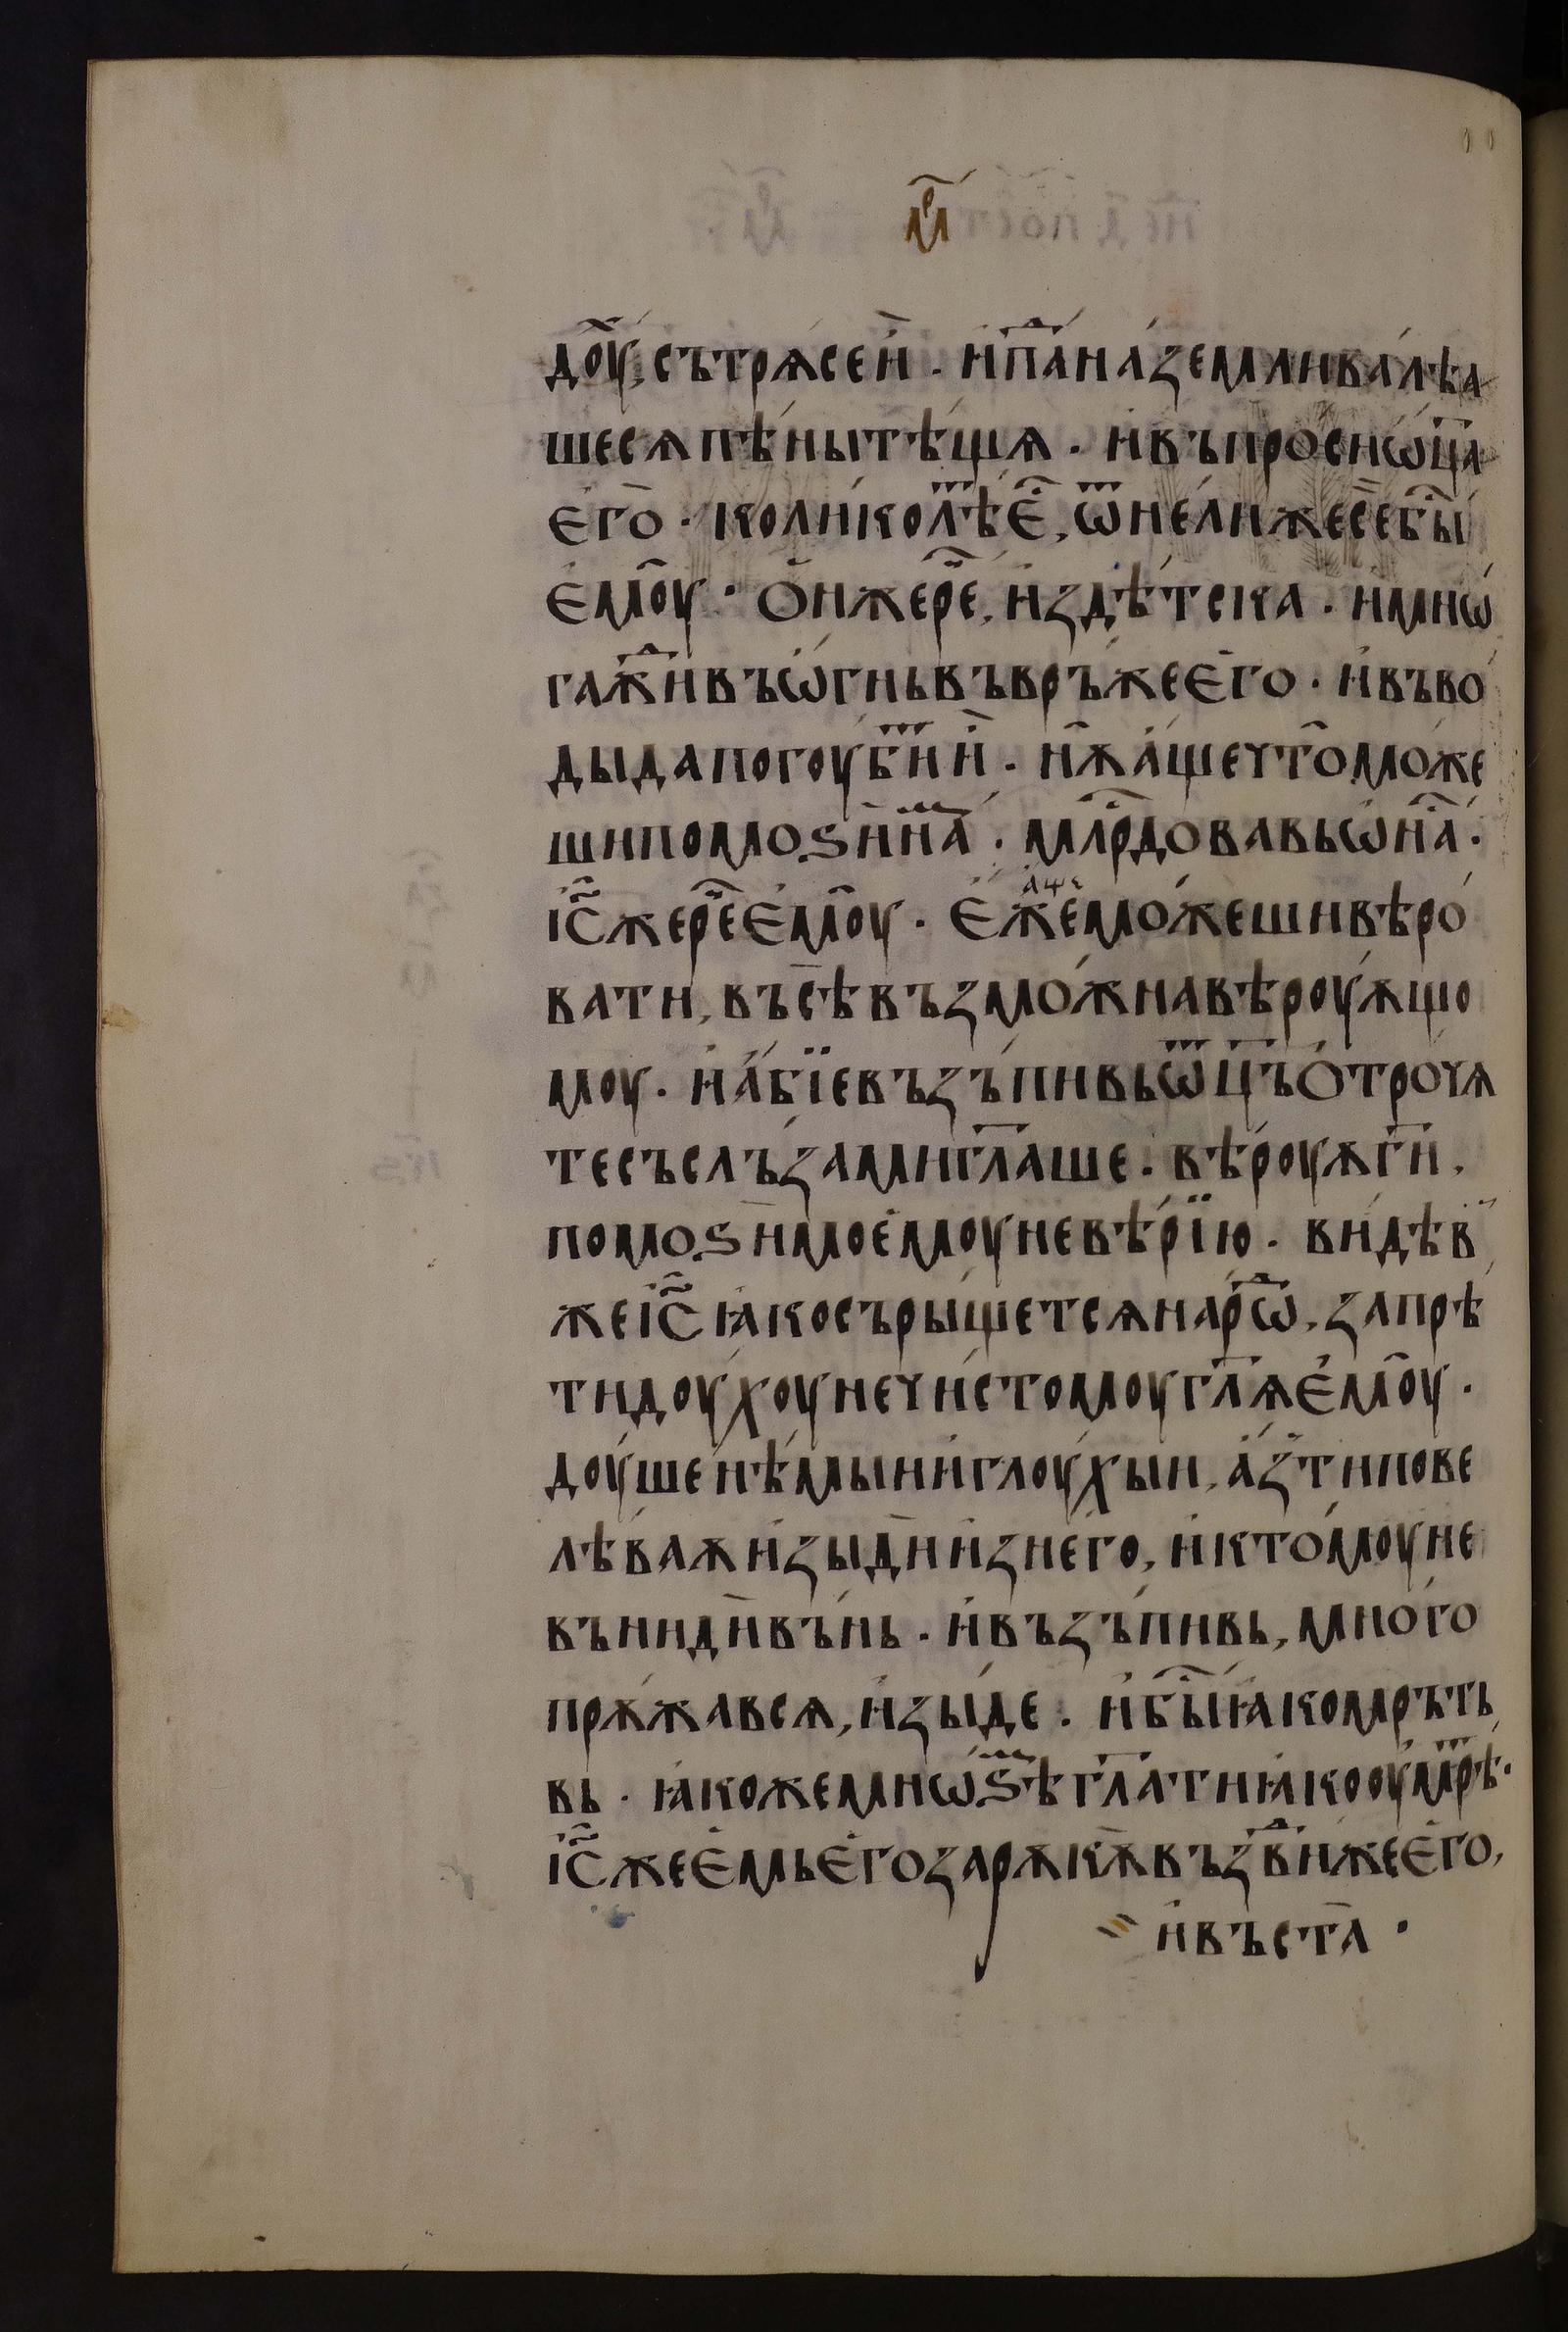 мр҃
до҃у, сътрѧсе и҆̀ . и҆ па́ⷣ на́ земли валѣа
шесѧ пѣ́ны тѣ́щѧ . и҆ въпроси ѡ҆ц҃а
є҆го̀ · коли́ко лѣⷮ є҆́ⷭ, ѿне́лиже се̏ бы́ⷭ
є҆мо҃у · Ѻ҆́нже ре́ⷱ, и҆з дѣ́тска . и҆ мнѡ
гаж́ⷣи въ ѡ҆́гнь въвръ́же є҆го . и҆ въ во́
ды да погоуби́ⷮ и҆̀ . нѫ а҆́ще что̑ мо́же
ши помоѕѝ на́ⷨ . млⷭ҇рдовавь ѡ҆ на́ⷭ .
і҆с҃ же ре́ⷱ є҆мо̑у . є҆́же а҆ще мо́жеши вѣро́
вати, въсѣ̀ възмо́жна вѣроу́ѫщо
моу . и҆ а҆́бїе възъпивь ѿц҃ъ ѻ҆трочѧ
те съ слъ́зами гл҃аше . вѣ́роуѫ гⷭ҇и,
помоѕѝ моемоу невѣ́рїю . ви́дѣв
же і҆с҃ ꙗ҆ко съры́щетсѧ нарѡ́ⷣ, запрѣ
ти доу́хоу нечи́стомоу гл҃ѧ є҆мо̑у .
доу́ше нѣ́мыи и҆ глоу́хыи, а҆́зъ ти пове
лѣ́ваѫ и҆зы́дѝ и҆з него, и҆ ктомоу̀ не
вънидѝ въ́нь . и҆ възъпи́вь, мно́го
прѫ́жавсѧ, и҆зы́де . и҆ бы́ⷭ ꙗ҆ко мръ́ть
вь . ꙗ҆коже мнѡ́ѕѣⷨ гл҃ати ꙗ҆ко оу҆́мрѣⷮ·
і҆с҃ же є҆́мь є҆го̀ за рѫкѫ̀ възⷣви́же є҆го,
и҆ въста̀ ·